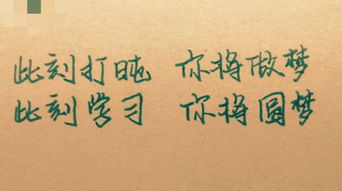 此刻打盹 你将做梦
此刻学习 你将圆梦